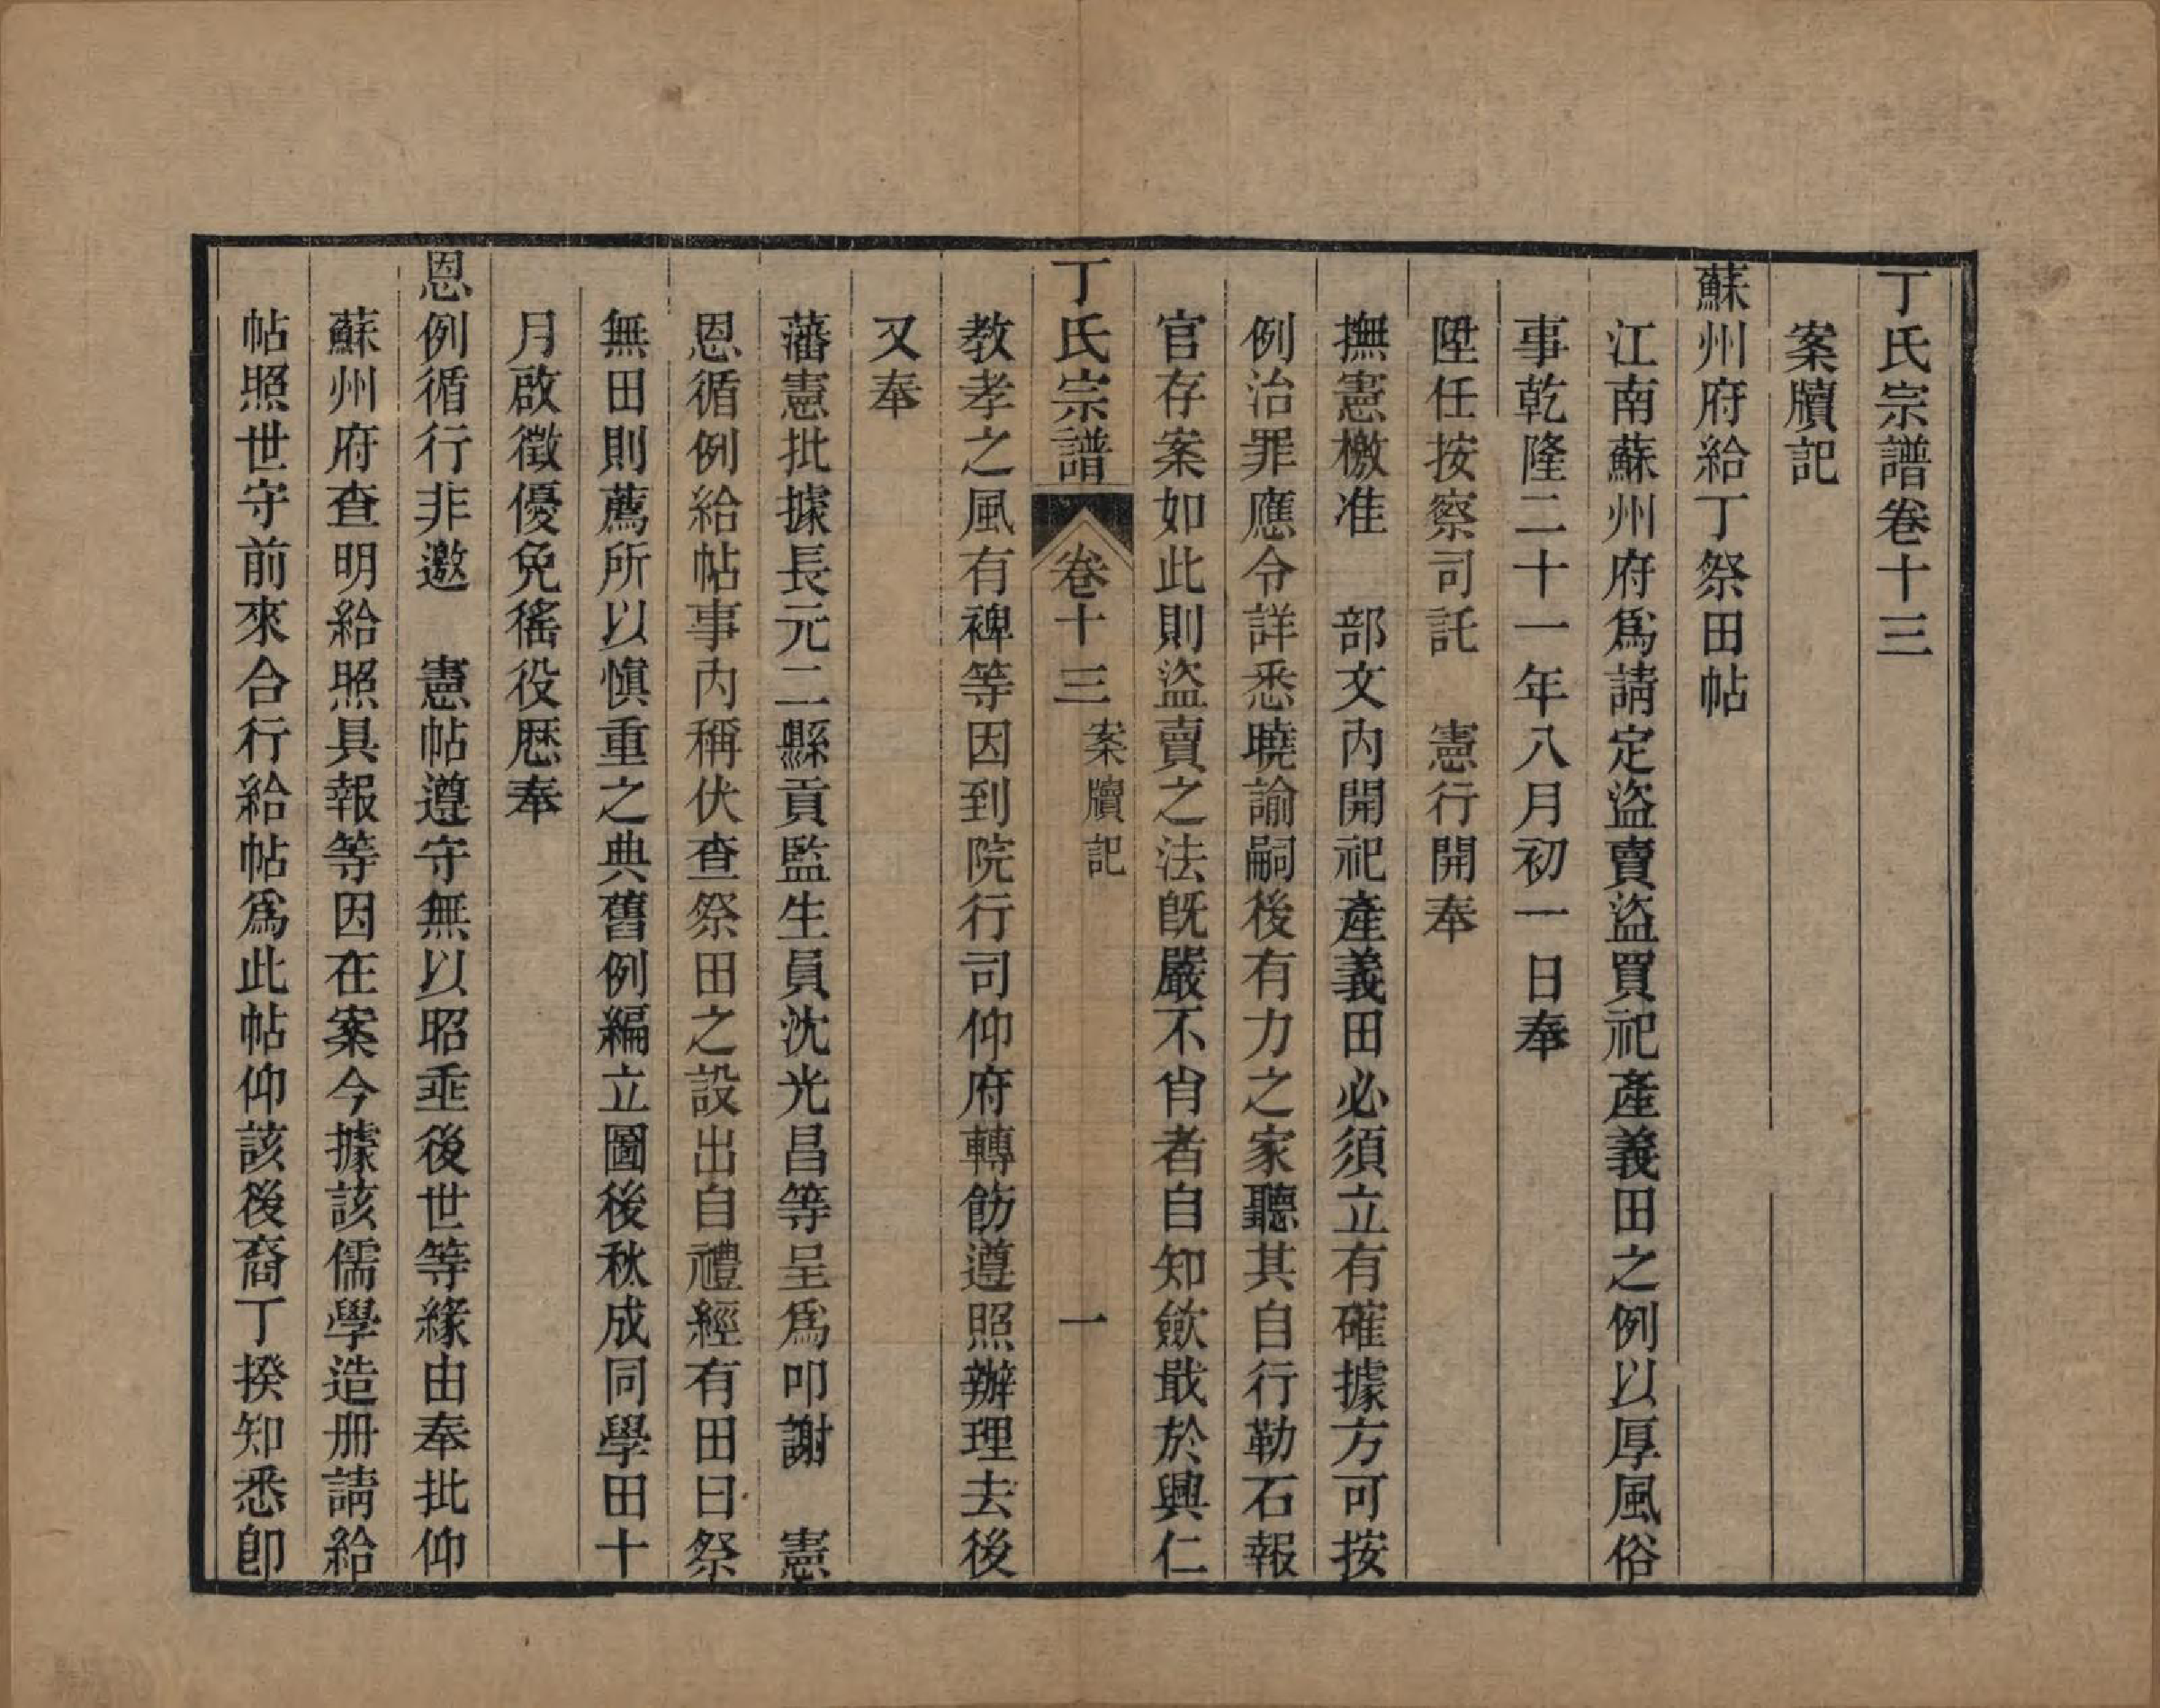 丁氏宗譜卷十三
案牘記
蘇州府給丁祭田帖
江南蘇州府爲請定盜賣盜買祀產義田之例以厚風俗
事乾隆二十一年八月初一日奉
陞任按察司託　憲行開奉
撫憲檄准　部文內開祀產義田必須立有確據方可按
例治罪應令詳悉曉諭嗣後有力之家聽其自行勒石報
官存案如此則盜賣之法旣嚴不肖者自知歛戢於興仁
丁氏宗譜　卷十三　案牘記　一
教孝之風有裨等因到院行司仰府轉飭遵照辦理去後
又奉
藩憲批據長元二縣貢監生員沈光昌等呈爲叩謝　憲
恩循例給帖事內稱伏查祭田之設出自禮經有田曰祭
無田則薦所以愼重之典舊例編立圖後秋成同學田十
月啟徵優免徭役歷奉
恩例循行非邀　憲帖遵守無以昭垂後世等緣由奉批仰
蘇州府查明給照具報等因在案今據該儒學造册請給
帖照世守前來合行給帖爲此帖仰該後裔丁揆知悉卽